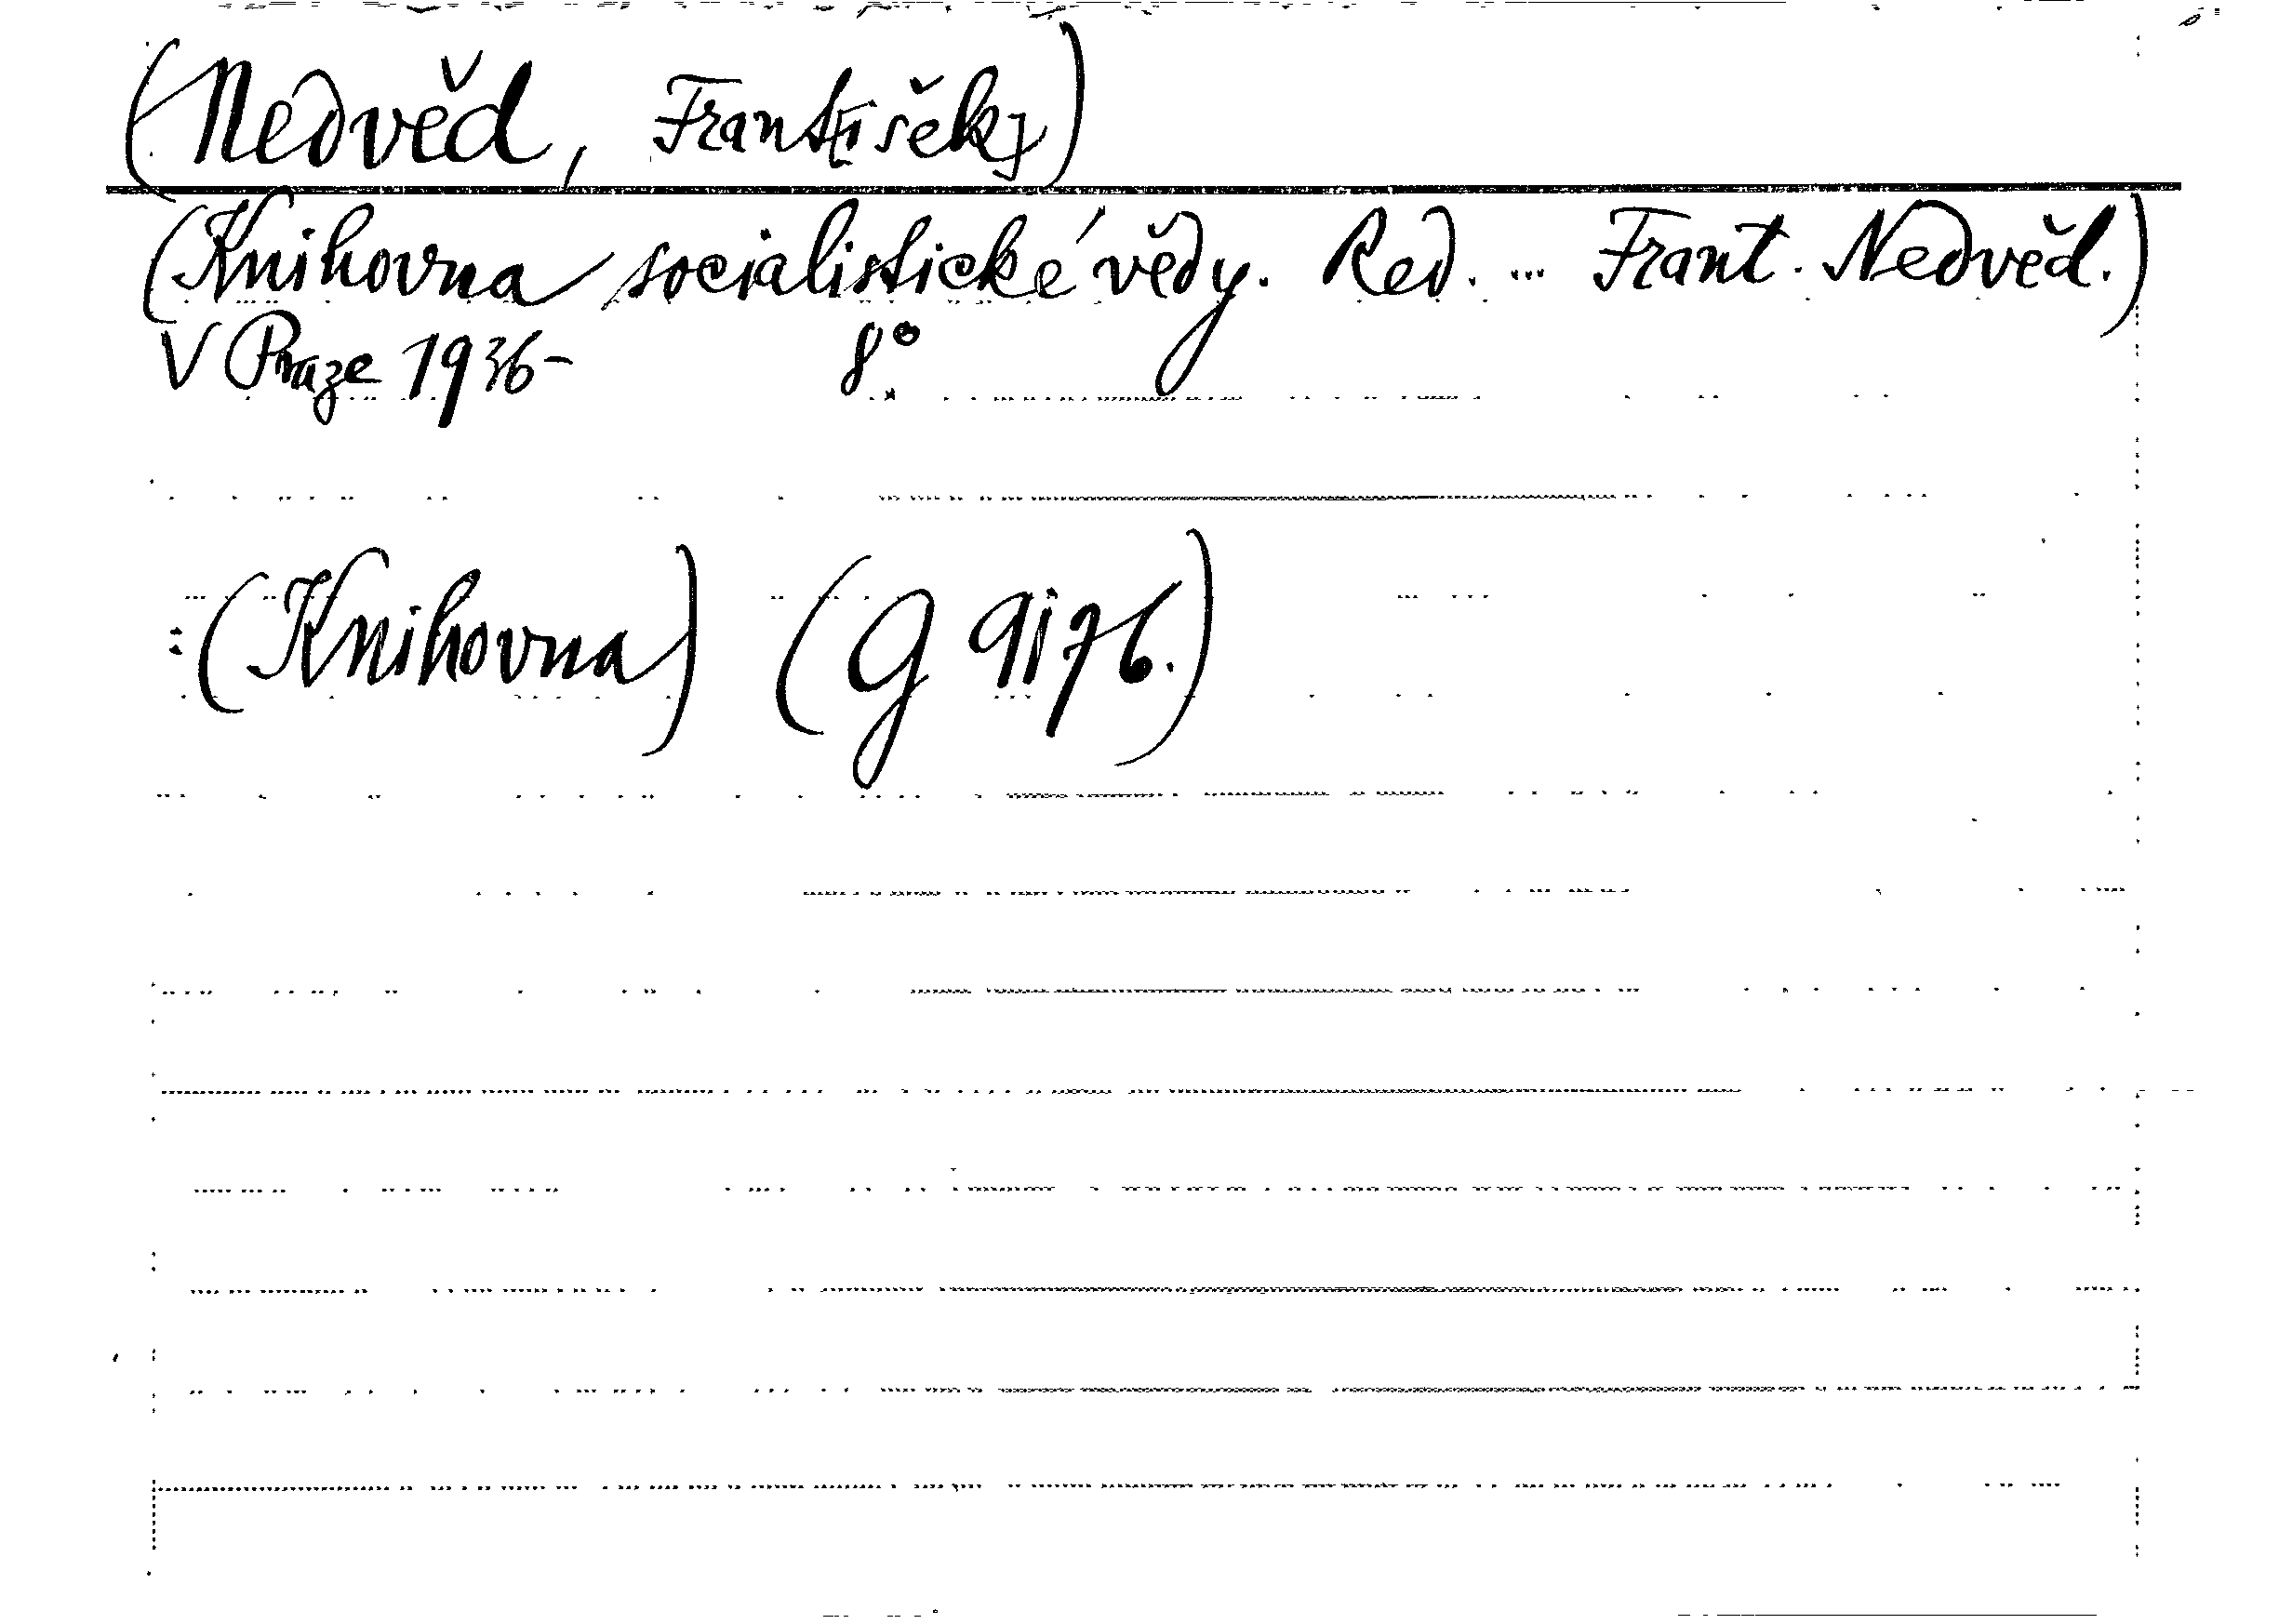 (Nedvěd, Frant[išek])
(Knihovna socialistické vědy. Red. ... Frant. Nedvěd.)
V Praze 1936- 8°
: (Knihovna) (G 9176.)